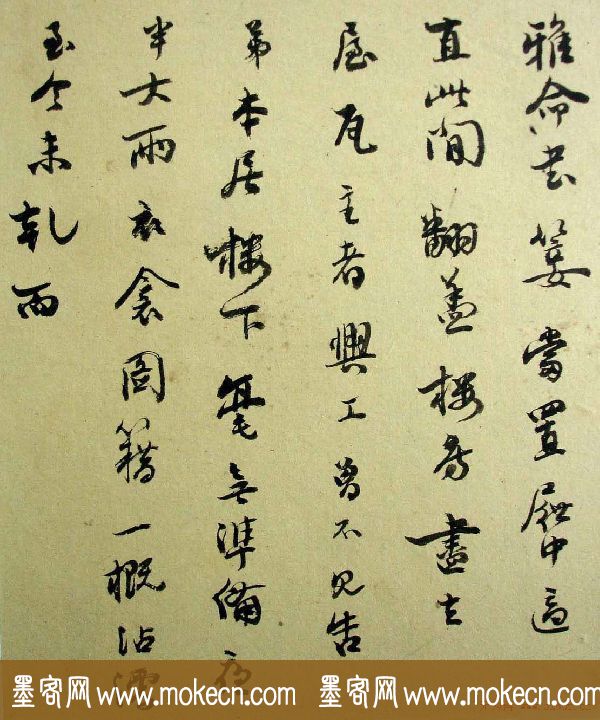 雅命书箑當置屜中適
直此間翻蓋樓房盡去
屋瓦主者興工曾不見告
弟本居樓下毫無準備夜
半大雨衣衾圖籍一概沾濡
至今未乾而
墨客网 www.mokecn.com 墨客网 www.mokecn.com